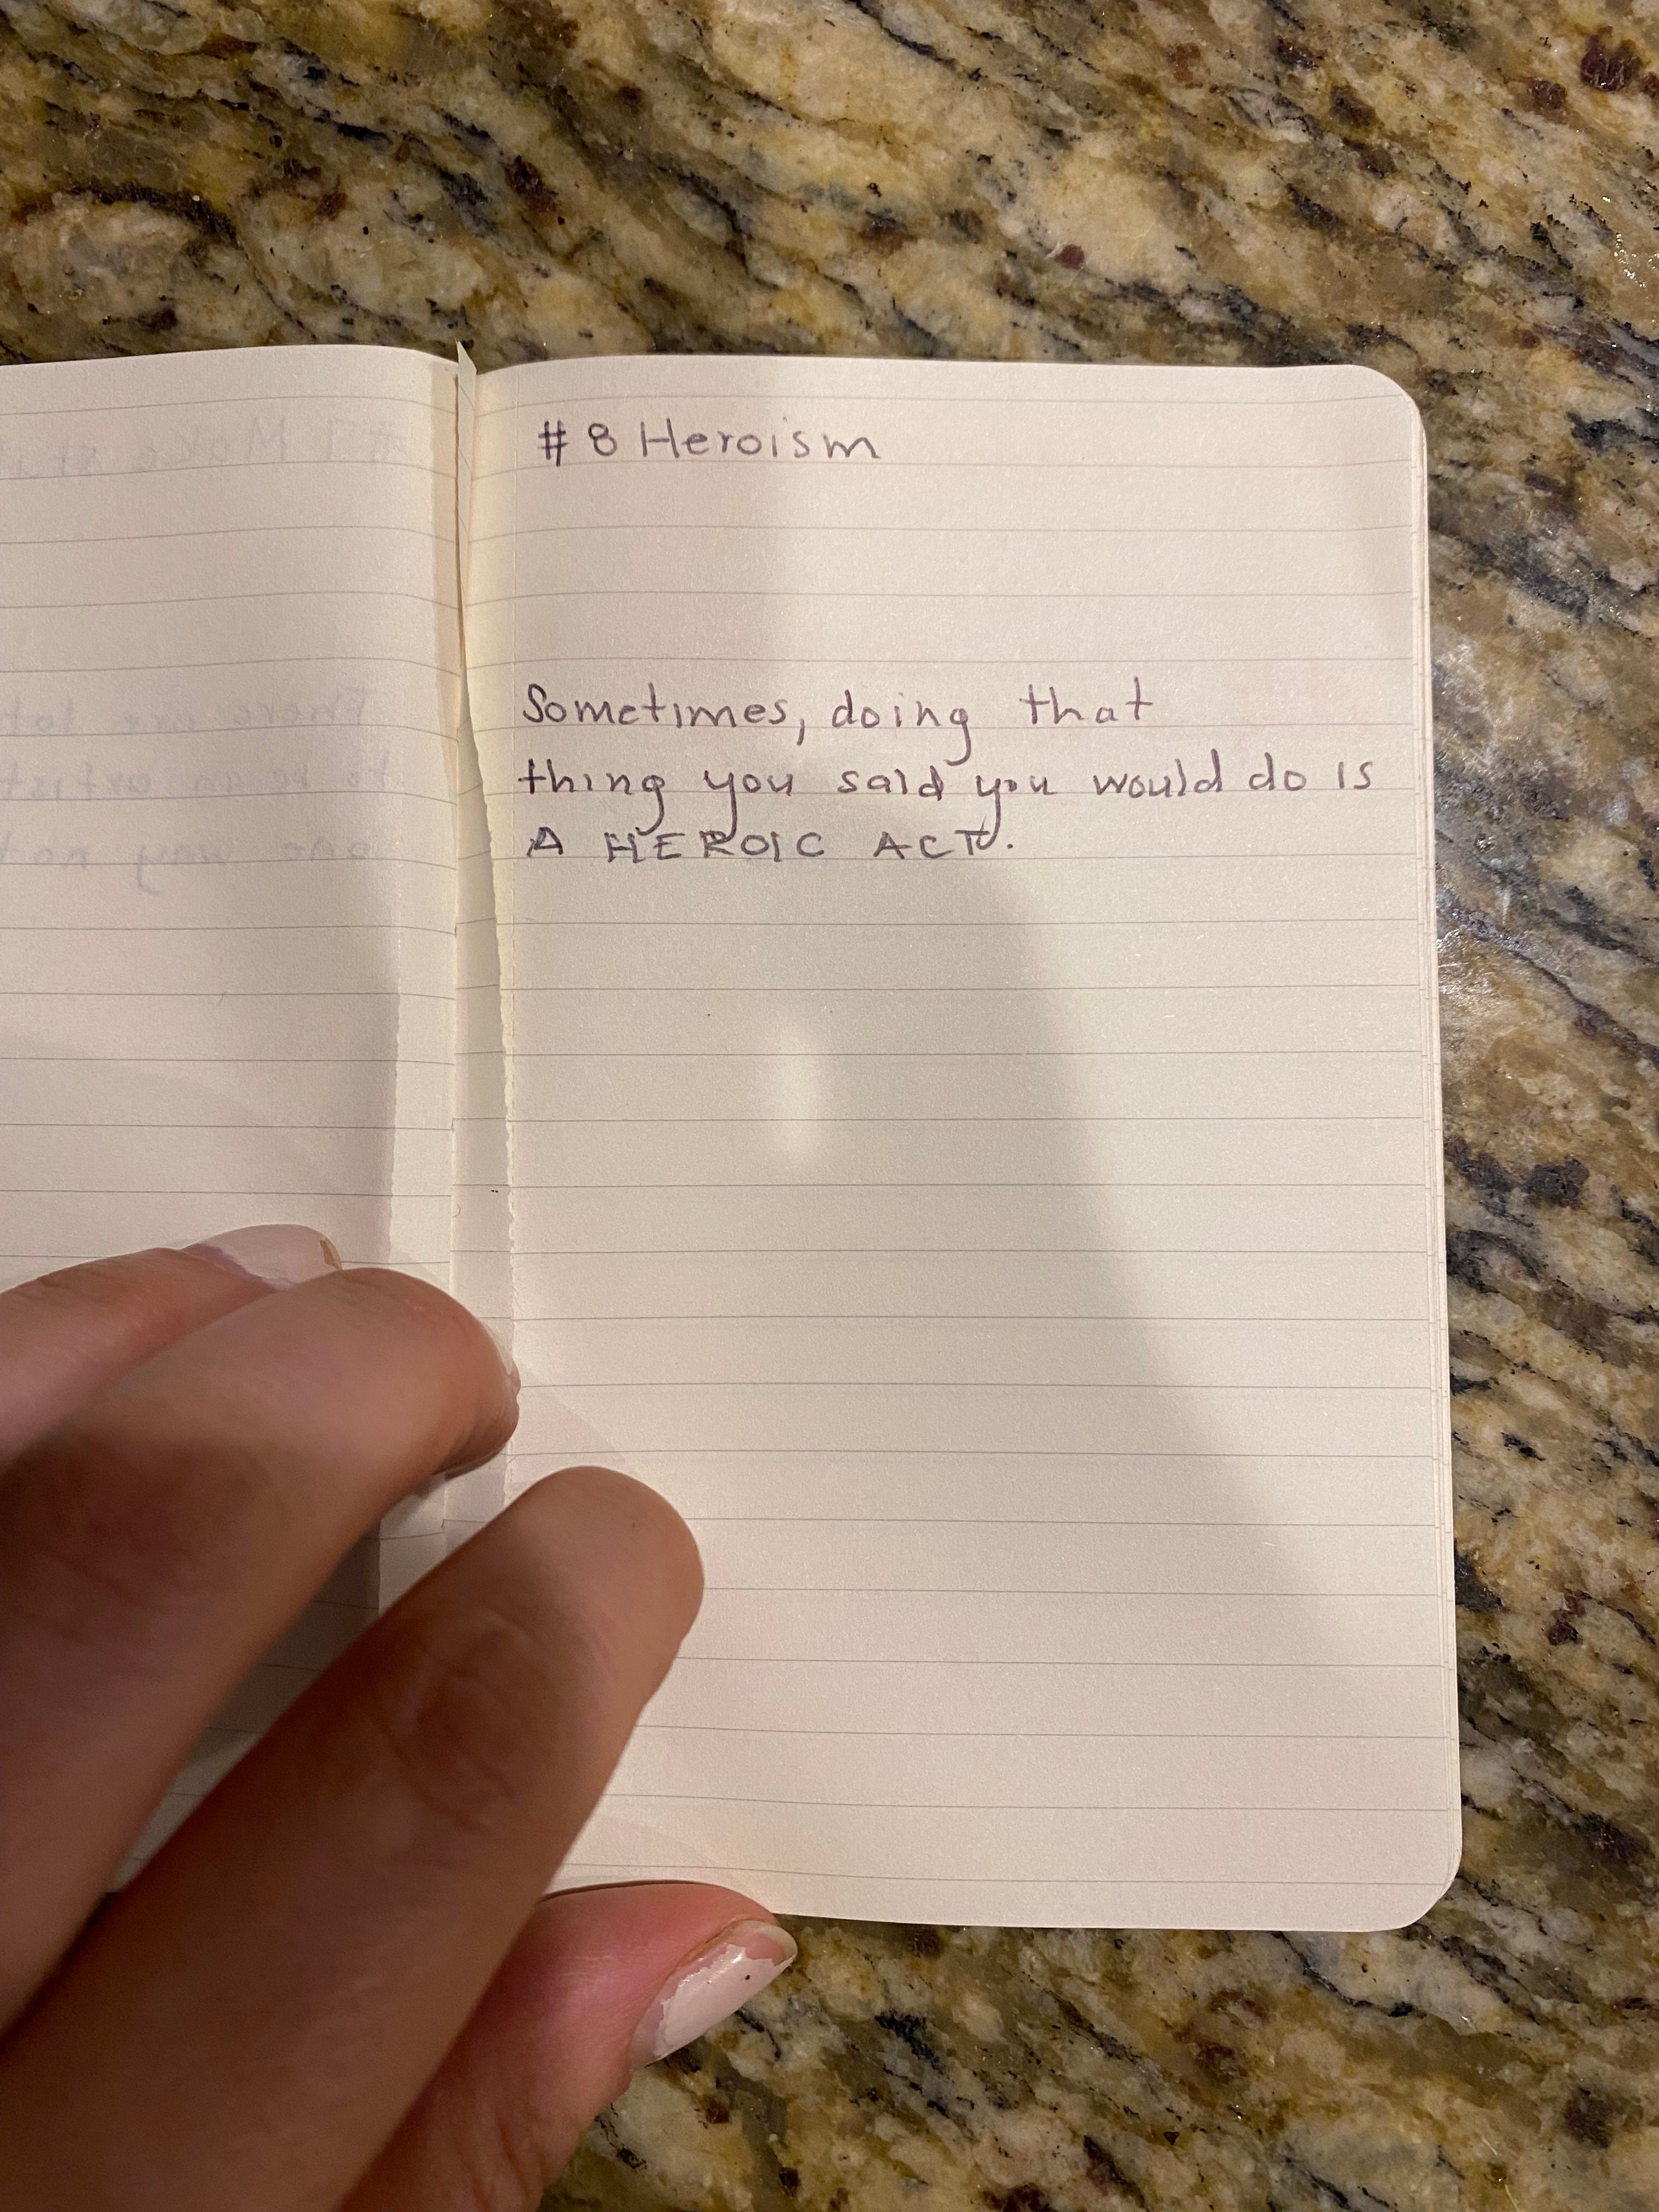 # 8 Heroism
Sometimes, doing that
thing you said you would do is
A HEROIC ACT.